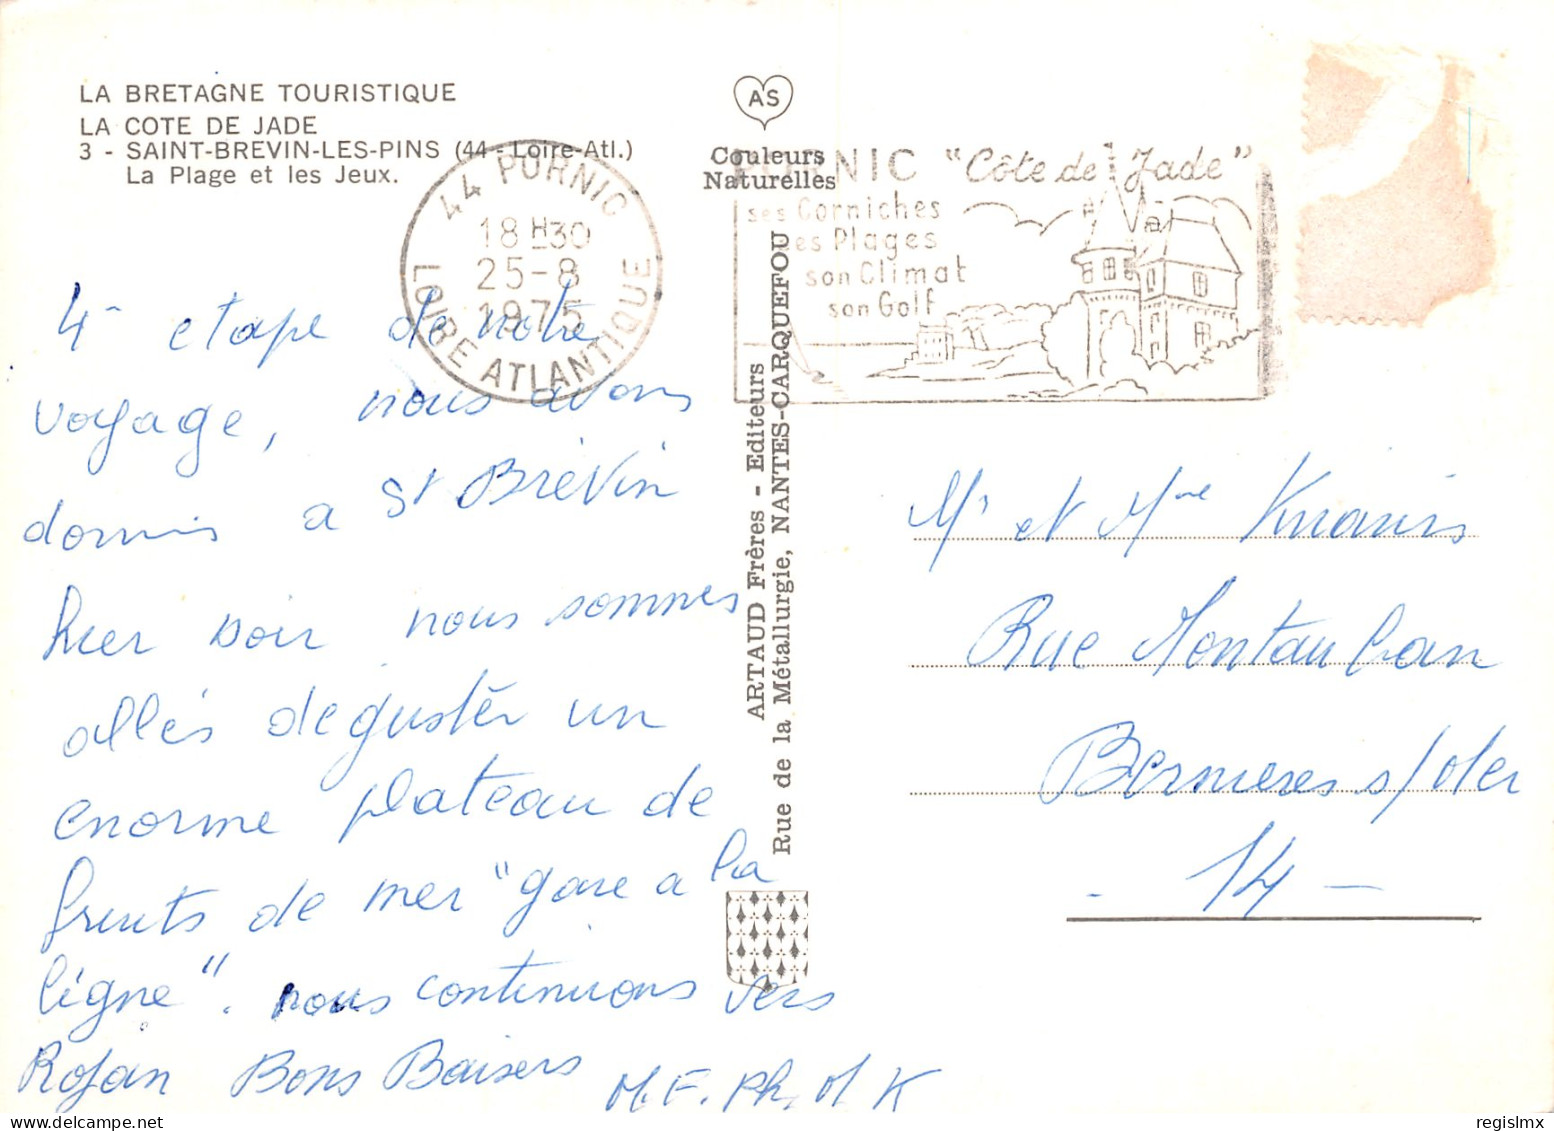 LA BRETAGNE TOURISTIQUE
LA COTE DE JADE
3 - SAINT-BREVIN-LES-PINS (44 - Loire-Atl.)
La Plage et les Jeux.
44 PORNIC
18 H 30
25-8
1975
LOIRE ATLANTIQUE
4e etape de notre
voyage, nous avons
dormis a St Brévin
hier soir nous sommes
allés deguster un
enorme plateau de
fruits de mer "gare a la
ligne". nous continuons vers
Royan Bons Baisers
M.F. Ph. M K
AS
Couleurs
Naturelles
ARTAUD Frères - Editeurs
Rue de la Métallurgie, NANTES-CARQUEFOU
PORNIC "Côte de Jade"
ses Corniches
ses Plages
son Climat
son Golf
Mr et Mme
Rue Montauban
Bernieres s/Mer
- 14 -
regislmx